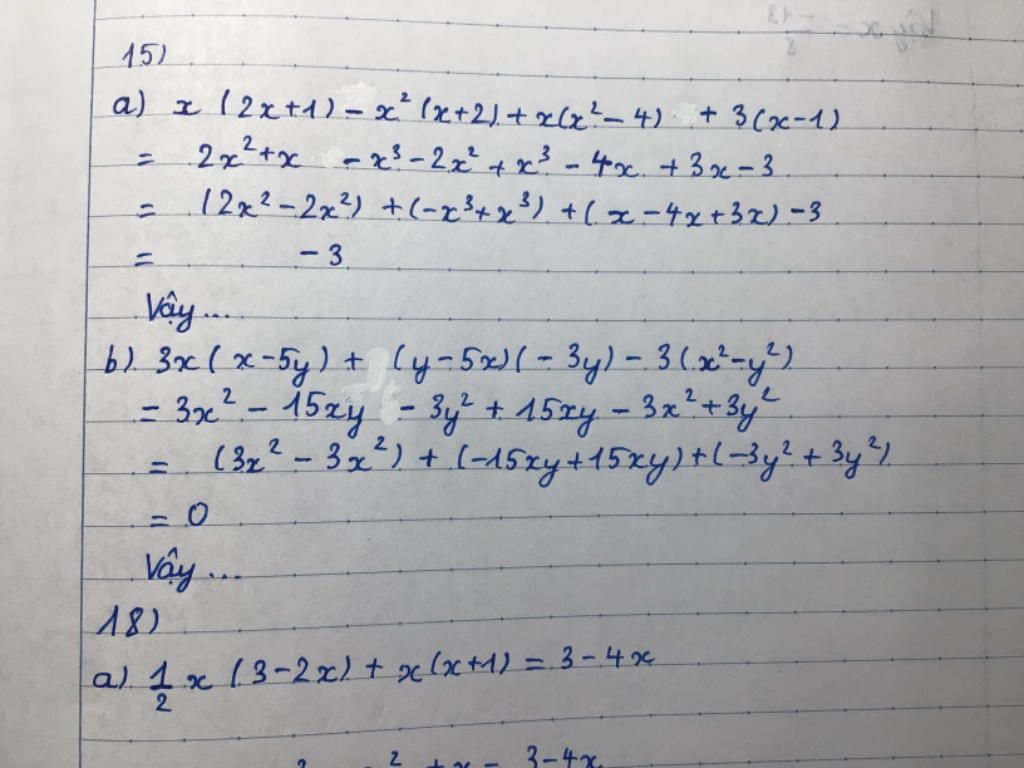 15)
a) x (2x+1) - x² (x+2) + x(x² - 4) + 3(x-1)
= 2x² + x - x³ - 2x² + x³ - 4x + 3x - 3
= (2x² - 2x²) + (-x³ + x³) + (x - 4x + 3x) - 3
= - 3
Vậy...
b) 3x ( x - 5y) + (y - 5x)( - 3y) - 3 (x² - y²)
= 3x² - 15xy - 3y² + 15xy - 3x² + 3y²
= (3x² - 3x²) + (-15xy + 15xy) + (-3y² + 3y²)
= 0
Vậy...
18)
a) 1/2 x (3 - 2x) + x(x+1) = 3 - 4x